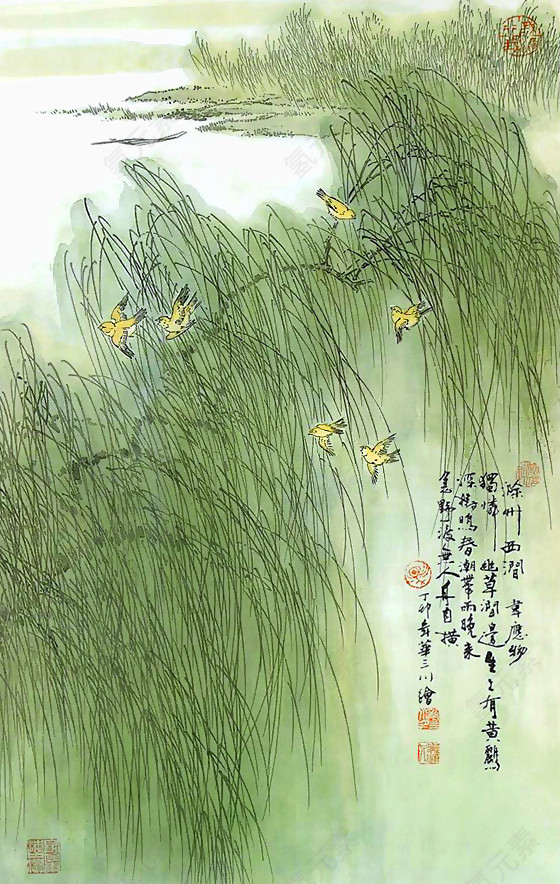 滁州西澗 韋應物
獨憐幽草澗邊生上有黄鸝
深樹鳴春潮帶雨晚来
急野渡無人舟自横
丁卯春華三川繪